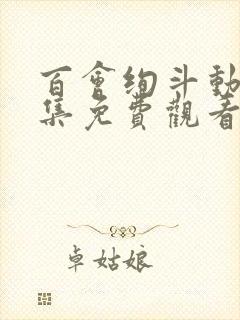 百會絢斗動
集免費觀看
卓姑娘